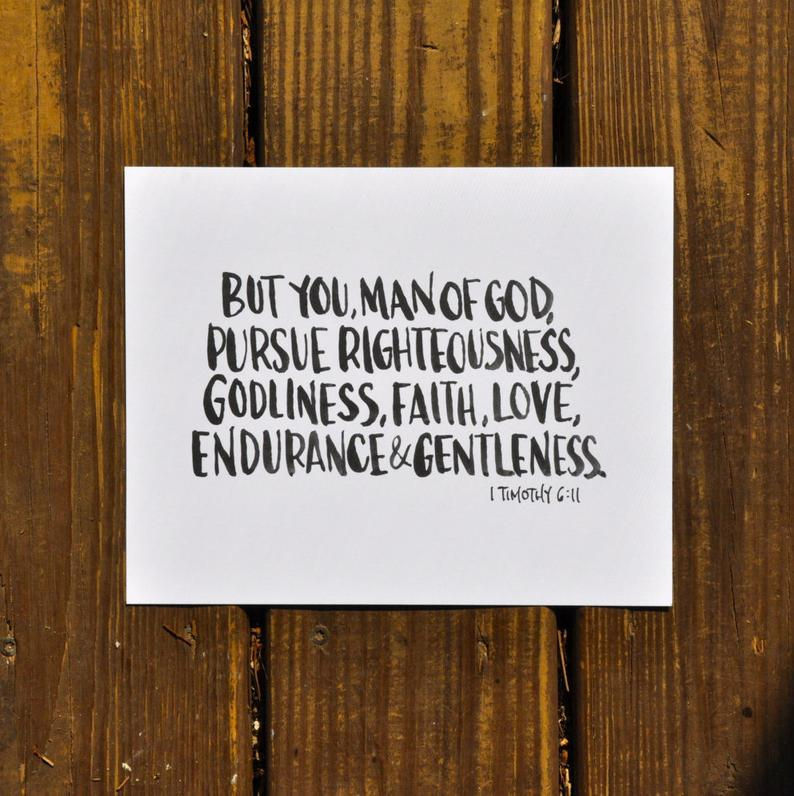 BUT YOU, MAN OF GOD,
PURSUE RIGHTEOUSNESS,
GODLINESS, FAITH, LOVE,
ENDURANCE & GENTLENESS.
1 TIMOTHY 6:11